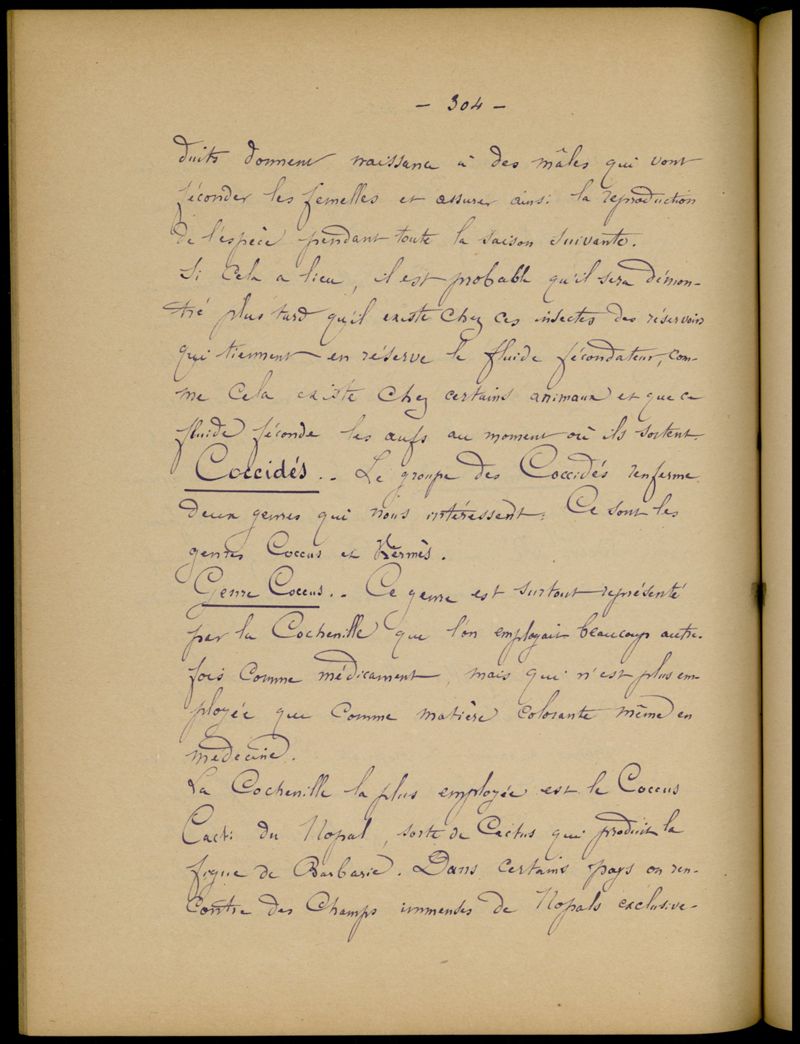 – 304 –
duits donnent naissance à des mâles qui vont
féconder les femelles et assurer ainsi la reproduction
de l'espèce pendant toute la saison suivante.
Si cela a lieu, il est probable qu'il sera démon-
tré plus tard qu'il existe chez ces insectes des réservoirs
qui tiennent en réserve le fluide fécondateur, com-
me cela existe chez certains animaux et que ce
fluide féconde les œufs au moment où ils sortent.
Coccidés.. Le groupe des Coccidés renferme
deux genres qui nous intéressent: Ce sont les
genres Coccus et Kermès.
Genre Coccus.. Ce genre est surtout représenté
par la Cochenille que l'on employait beaucoup autre-
fois comme médicament, mais qui n'est plus em-
ployée que comme matière colorante même en
médecine.
La Cochenille la plus employée est le Coccus
Cacti du Nopal, sorte de Cactus qui produit la
figue de Barbarie. Dans certains pays on ren-
contre des champs immenses de Nopals exclusive-